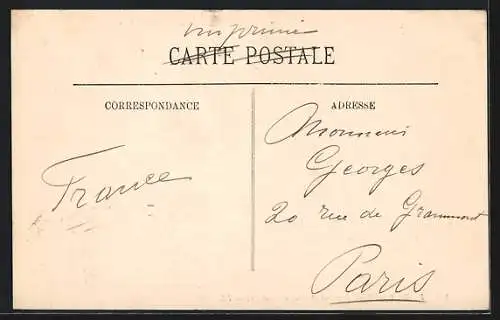 imprimé
CARTE POSTALE
CORRESPONDANCE
ADRESSE
France
Monsieur
Georges
20 rue de Grammont
Paris